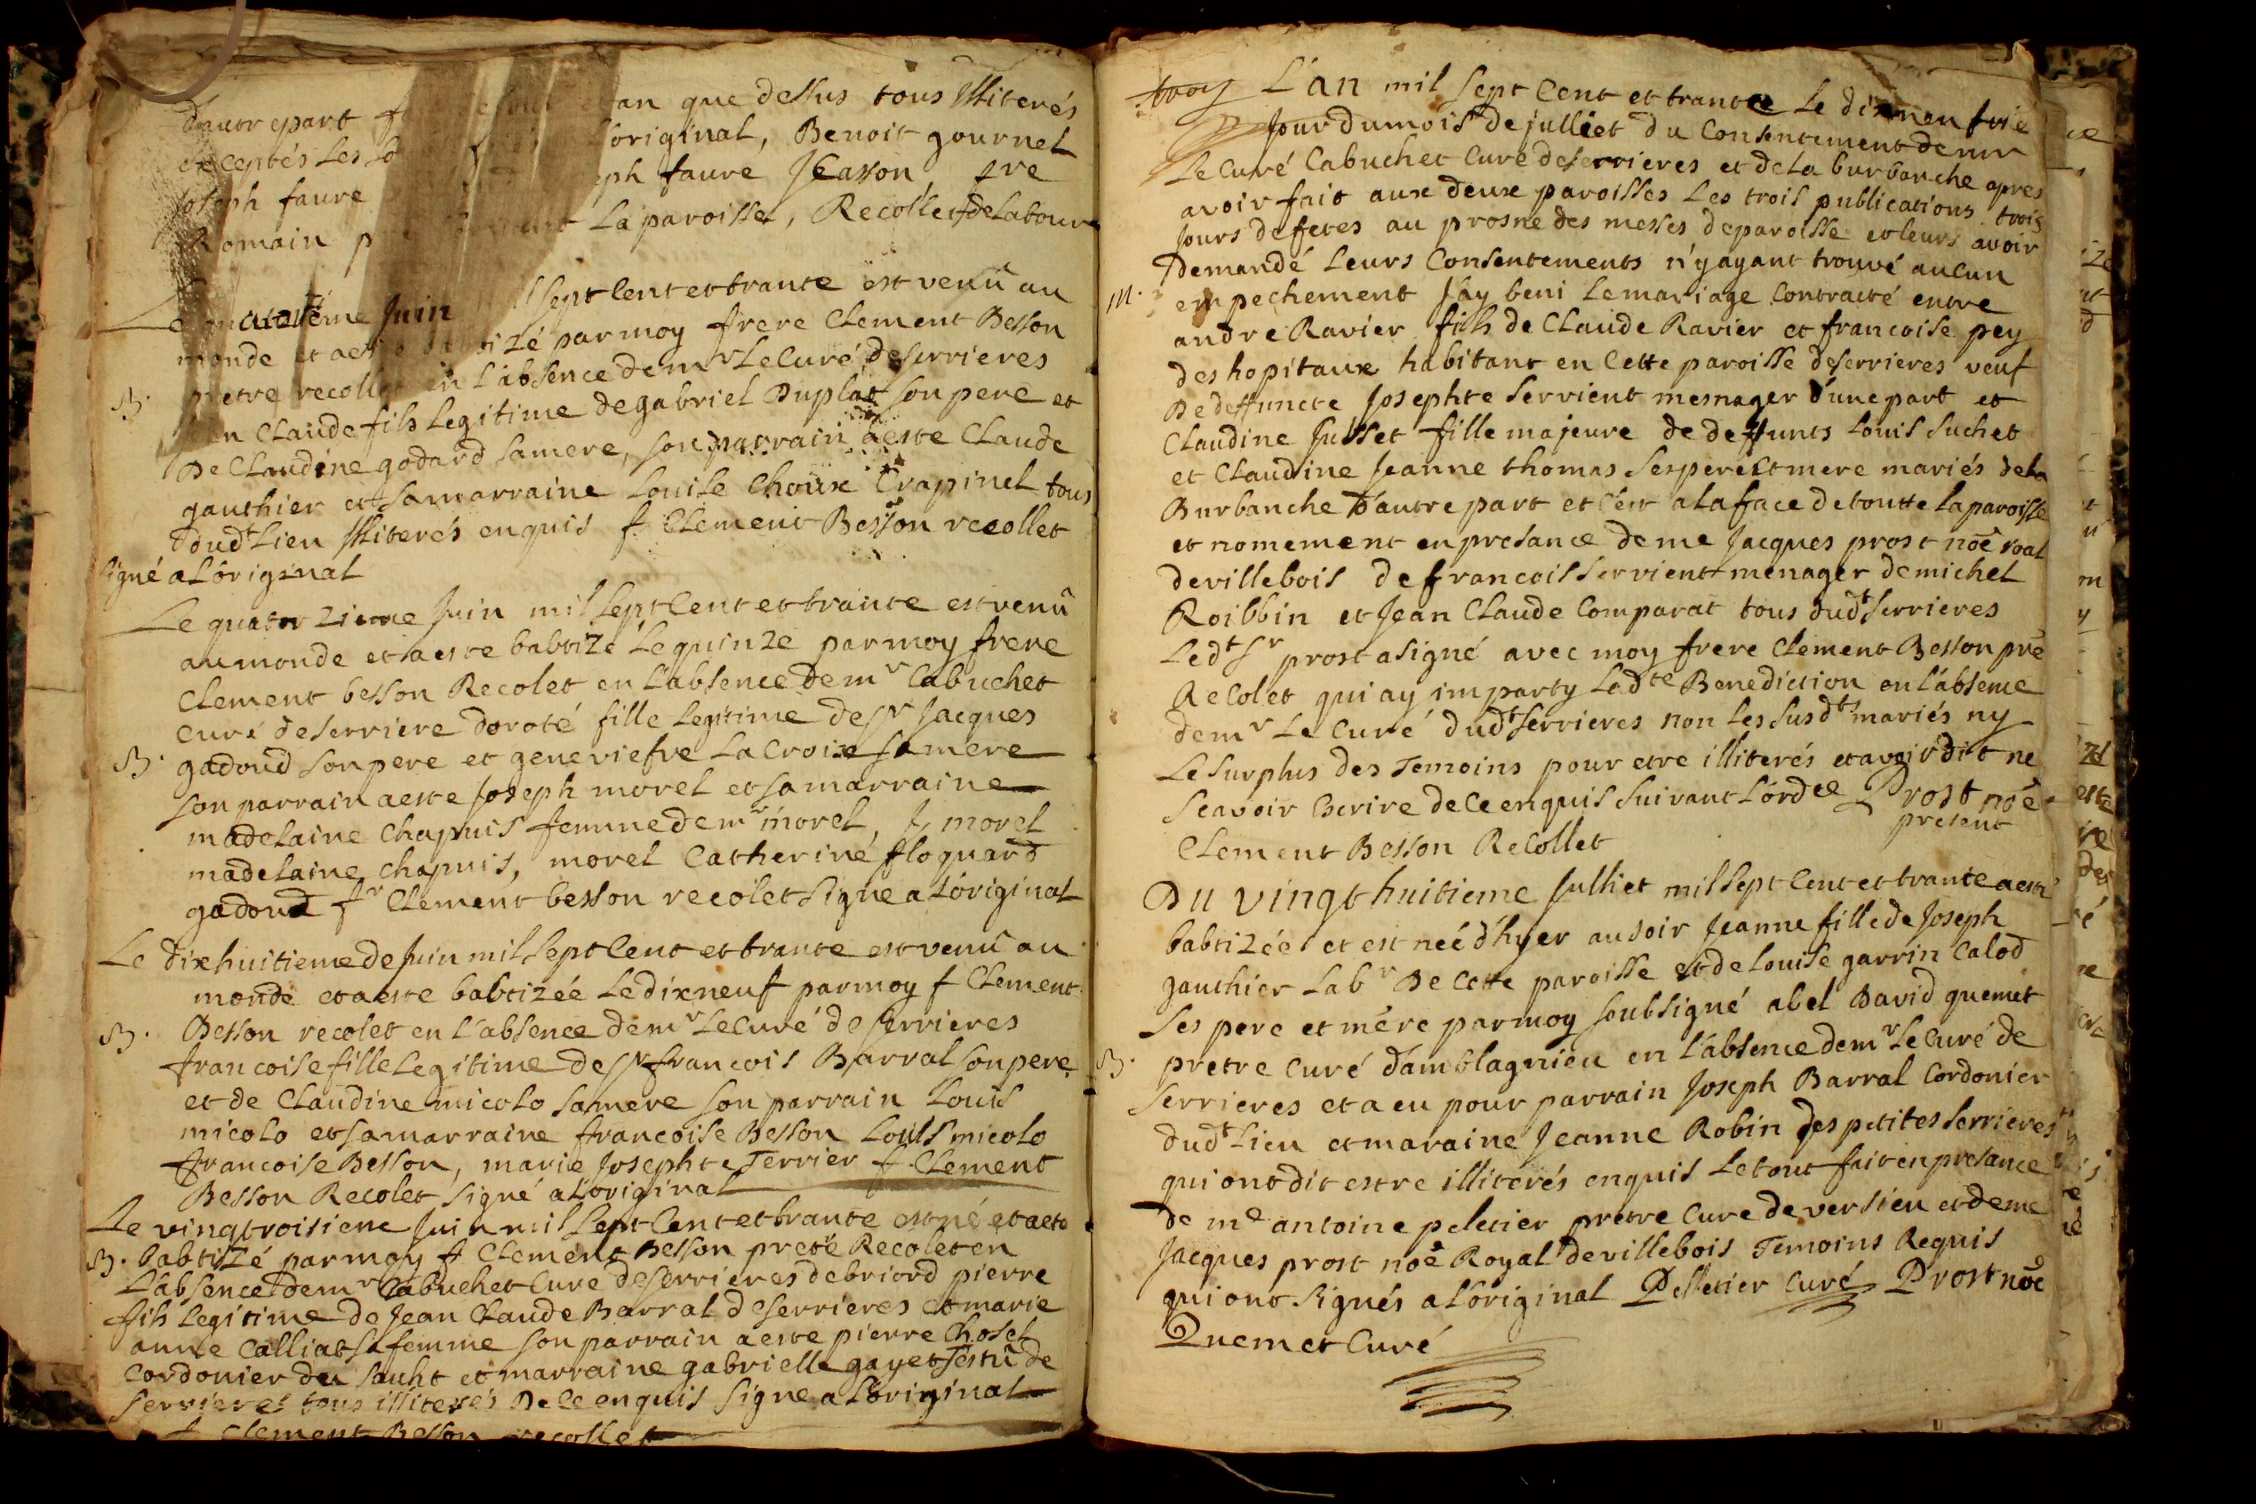 dautrepart f an que dessus tous Illiterés
exceptés les so loriginal, Benoit gournel
Joseph faure eph faure Jeasson pre
Romain p la paroisse, Recollet de Labour
Le Juin sept Cent et trante est venû au
monde et a este parmoy frere Clement Besson
pretre recollet en l'absence de mr Le Curé de serrieres
B. Claude fils legitime de gabriel Duplat son pere et
De Claudine godard sa mere, son parrain a este Claude
gauthier et sa marraine Louise Choux Crapinel tous
dudt Lieu Illiterés enquis f. Clement Besson recollet
signé a Loriginal
Le quatorzieme Juin mil sept Cent et trante est venû
au monde et a este babtizé Le quinze par moy frere
Clement besson Recolet en L'absence de mr Cabuchet
Curé de serriere doroté fille legitime de sr Jacques
B. gadoud son pere et geneviefve La Croix sa mere
son parrain a este Joseph morel et sa marraine
madelaine Chapuis femme de mr morel, J. morel
madelaine Chapuis, morel Catheriné floquard
gadoud fr Clement besson recolet signe a Loriginal
Le dixhuitieme de Juin mil sept Cent et trante est venû au
monde et a este babtizée Le dixneuf par moy f Clement
B. Besson recolet en L'absence de mr Le Curé de serrieres
francoise fille Legitime de sr francois Barral son pere
et de Claudine micolo sa mere son parrain Louis
micolo et sa marraine francoise Besson Louis micolo
francoise Besson, marie Josephte Terrier f. Clement
Besson Recolet signé a Loriginal
Le vingtroisieme Juin mil sept Cent et trante est né et a este
B. Babtizé par moy f Clement Besson pretre Recolet en
L'absence de mr Cabuchet Cure de serrieres de briord pierre
fils legitime de Jean Claude Barral de serrieres et marie
anne Calliat sa femme son parrain a este pierre Chosel
Cordonier du sault et marraine gabrielle gayet Testû de
serrieres tous illiterés De Ce enquis signe a Loriginal
f Clement Besson recollet
troy L'an mil sept Cent et trante Le dixneufvie
Jour du mois de julliet du Consentement de mr
Le Curé Cabuchet Curé de serrieres et de La burbanche apres
avoir fait aux deux paroisses Les trois publications trois
Jours de fetes au prosne des messes de paroisse et leurs avoir
Demandé Leurs Consentements n'y ayant trouvé aucun
m. empechement J'ay beni Le mariage Contracté entre
andre Ravier fils de Claude Ravier et francoise pey
des hopitaux habitant en Cette paroisse de serrieres veuf
De deffuncte Josephte servient mesnager d'une part et
Claudine Suchet fille majeure de deffunts Louis Suchet
et Claudine Jeanne thomas ses pere et mere mariés de La
Burbanche d'autre part et C'est a la face de toutte la paroisse
et nomement en presance de me Jacques prost noē roal
de villebois de francois servient menager de michel
Roibbin et Jean Claude Comparat tous dudt serrieres
Ledt sr prost a signé avec moy frere Clement Besson prē
Recolet qui ay imparty Ladte Benediction en L'absence
de mr Le Curé dudt serrieres non les susdts mariés ny
Le surplus des Temoins pour etre illiterés et avoir dit ne
sçavoir Ecrire de Ce enquis suivant L'ordce Prost noē
present
Clement Besson Recollet
Du vingt huitieme Julliet mil sept Cent et trante a esté
babtizée et est née d'hyer au soir Jeanne fille de Joseph
gauthier Labr De Cette paroisse et de Louise garrin Calod
ses pere et mere par moy soubsigné abel David quemet
B. pretre Curé damblagnieu en L'absence de mr Le Curé de
serrieres et a eu pour parrain Joseph Barral Cordonier
dudt Lieu et maraine Jeanne Robin des petites serrieres
qui ont dit estre illiterés enquis Le tout fait en presance
de me antoine peletier pretre Cure de versieu et de me
Jacques prost noē Royal de villebois Temoins Requis
qui ont signés a Loriginal Pelletier Curé Prost noē
Quemet Curé